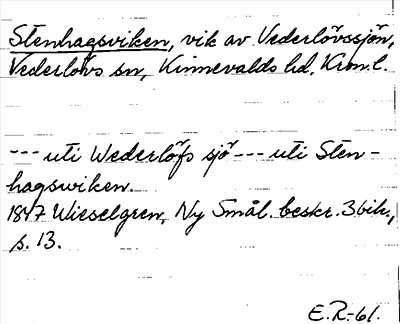 Stenhagsviken, vik av Vederlövssjön,
Vederlövs sn, Kinnevalds hd, Kron. l.
--- uti Wederlöfs sjö --- uti Sten-
hagswiken.
1847 Wieselgren, Ny Smål. beskr. 3 bih.,
s. 13.
E.R-61.